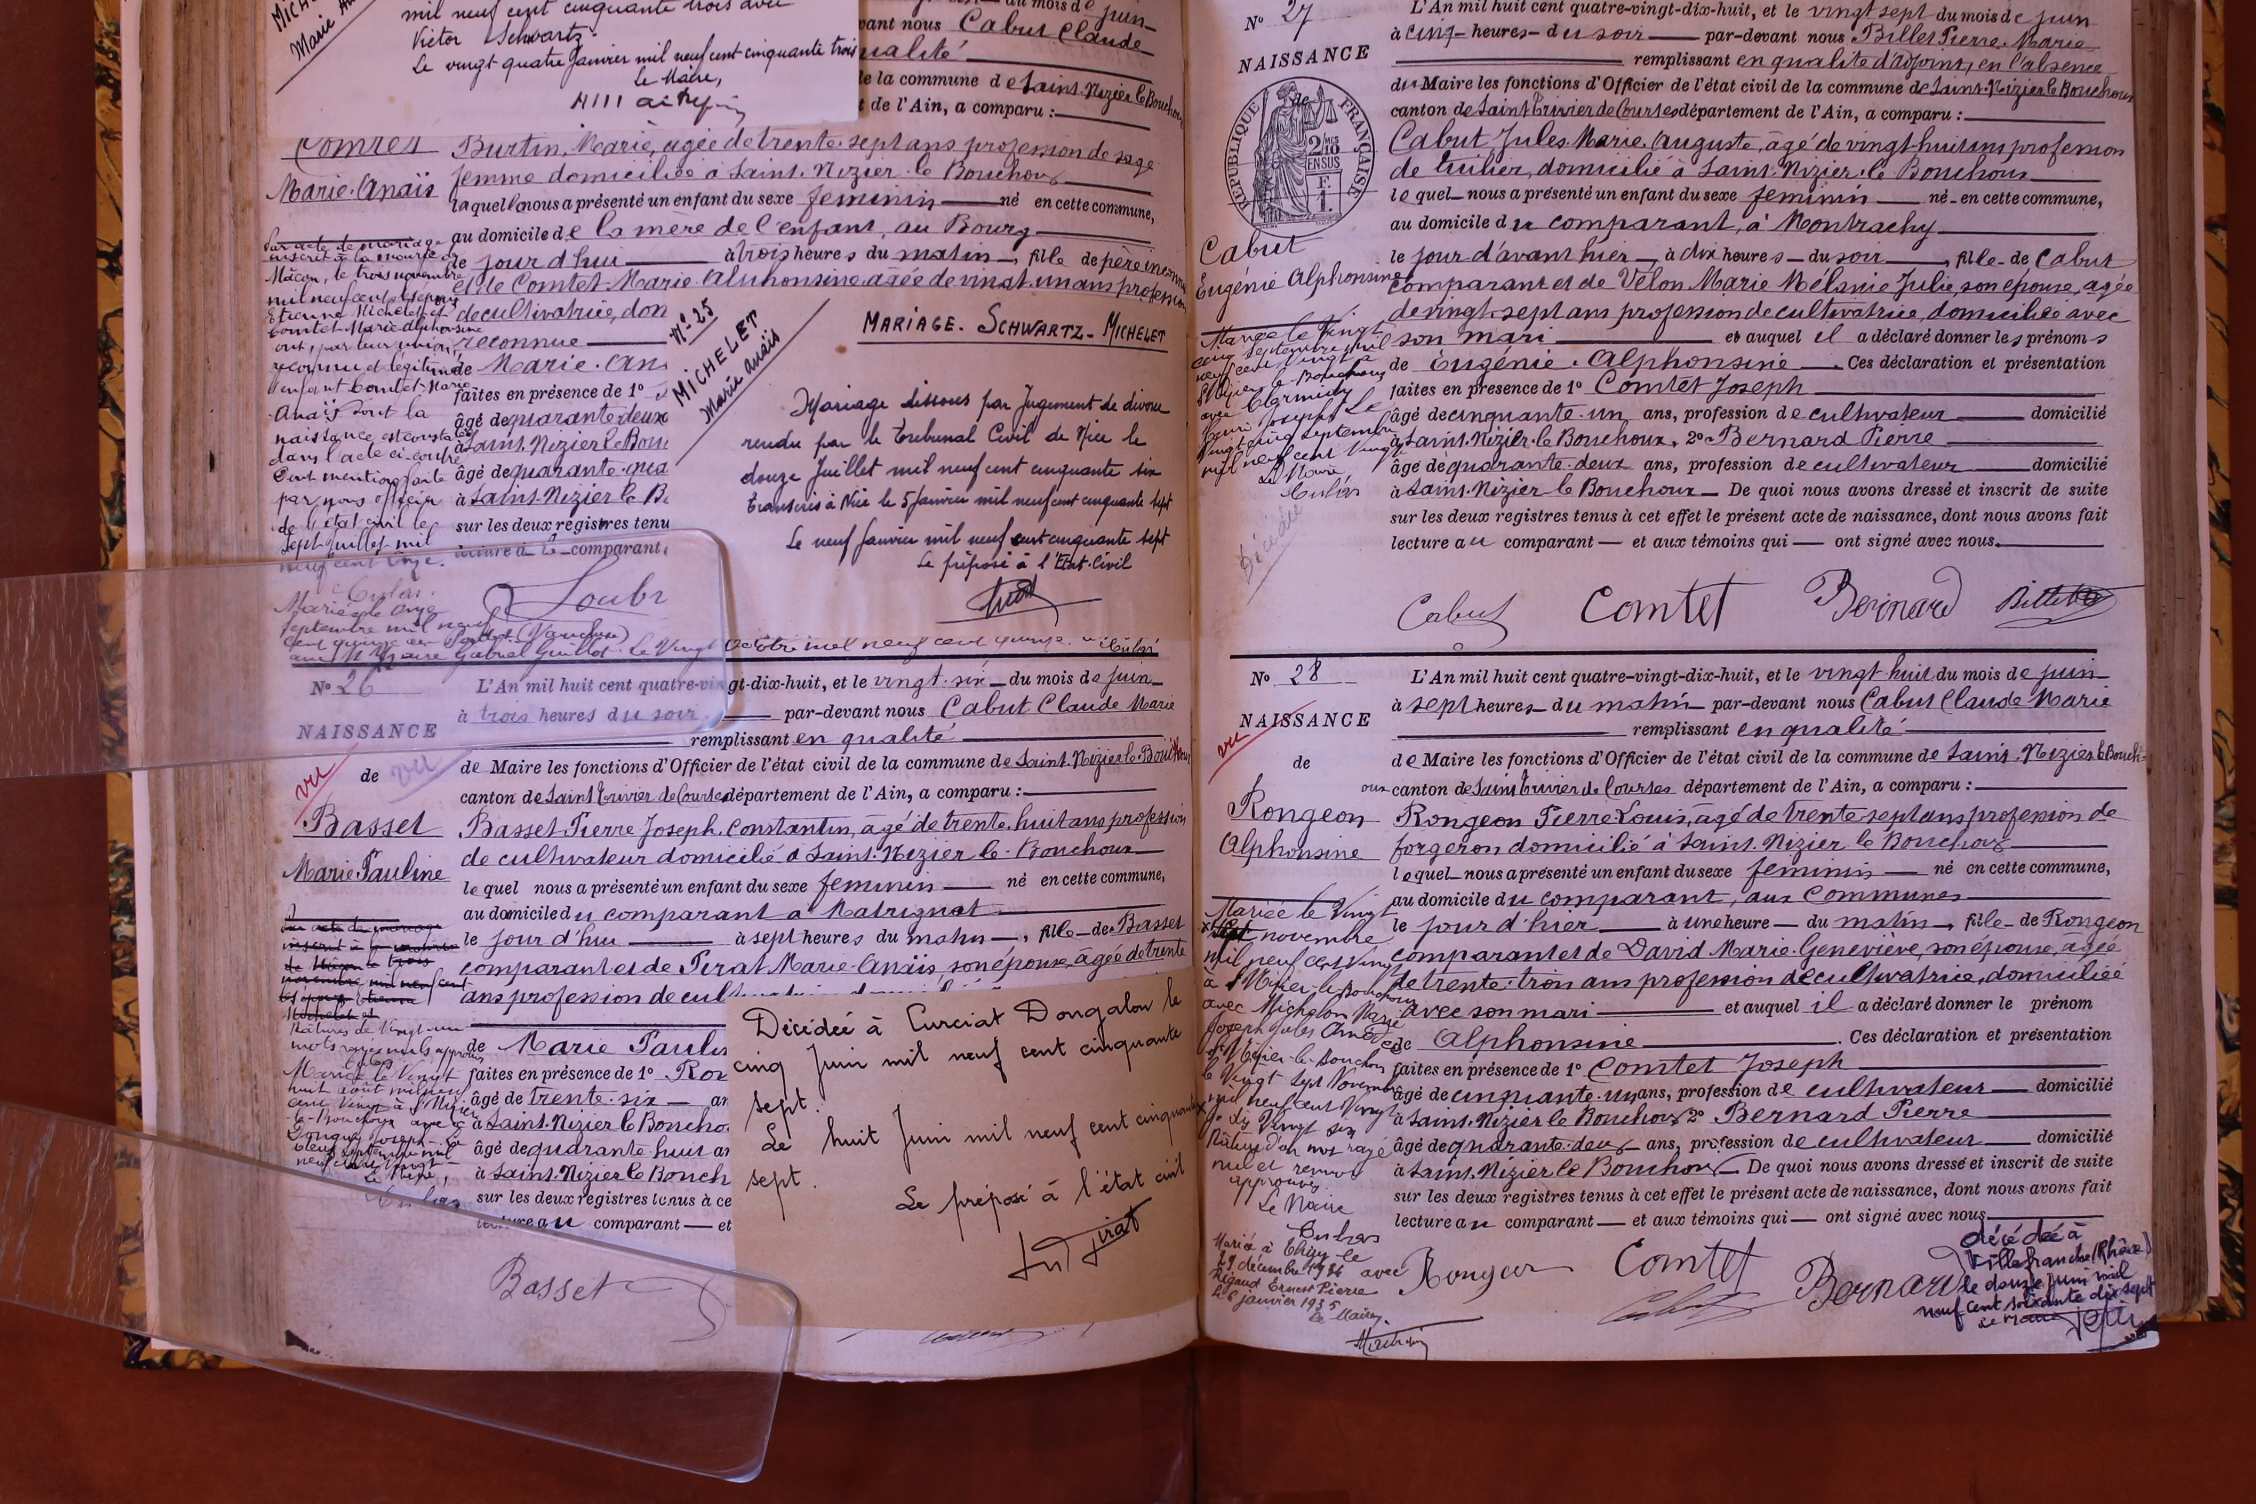 MICH
Marie An
mil neuf cent cinquante trois avec
Victor Schwartz
Le vingt quatre Janvier mil neuf cent cinquante trois
Le Maire,
du mois de juin
vant nous Cabut Claude
ualité
de la commune de Saint-Nizier le Bouchoux
t de l'Ain, a comparu :
Comtet
Marie-Anaïs
Burtin, Marie, âgée de trente-sept ans profession de sage
femme domiciliée à Saint-Nizier-le Bouchoux
laquelle nous a présenté un enfant du sexe féminin né en cette commune,
au domicile de la mère de l'enfant, au Bourg
le jour d'hui à trois heures du matin, fille de père inconnu
et de Comtet Marie Alphonsine âgée de vingt-un ans profession
de cultivatrice, don
reconnue
de Marie-An
faites en présence de 1º
âgé de quarante-deux
à Saint-Nizier le Bou
âgé de quarante-qua
à Saint-Nizier le B
sur les deux registres tenu
lecture à le comparant
Par acte de mariage
inscrit à la mairie de
Mâcon, le trois novembre
mil neuf cent
Etienne Michelet et
Comtet Marie Alphonsine
ont, par leur union,
reconnu et légitimé
l'enfant Comtet Marie
Anaïs dont la
naissance est constatée
dans l'acte ci-contre
Dont mention faite
par nous officier
de l'état civil le
sept juillet mil
neuf cent onze.
Culas
Mariée le onze
septembre mil neuf
cent quinze (Vaucluse)
Gabriel Guillot. Le Vingt Octobre mil neuf cent quinze. Culas
Loubr
Nº 25
MICHELET
Marie Anaïs
MARIAGE. SCHWARTZ - MICHELET
Mariage dissous par Jugement de divorce
rendu par le Tribunal Civil de Nice le
douze Juillet mil neuf cent cinquante six
Transcris à Nice le 5 Janvier mil neuf cent cinquante sept
Le neuf Janvier mil neuf cent cinquante sept
Le préposé à l'Etat-Civil
Nº 26
NAISSANCE
de
vu
vu
Basset
Marie Pauline
L'An mil huit cent quatre-vingt-dix-huit, et le vingt-six du mois de juin
à trois heures du soir par-devant nous Cabut Claude Marie
remplissant en qualité
de Maire les fonctions d'Officier de l'état civil de la commune de Saint-Nizier le Bouchoux
canton de Saint Trivier de Courtes département de l'Ain, a comparu :
Basset Pierre Joseph Constantin, âgé de trente-huit ans profession
de cultivateur domicilié à Saint-Nizier-le-Bouchoux
lequel nous a présenté un enfant du sexe féminin né en cette commune,
au domicile du comparant à Matrignat
le jour d'hui à sept heures du matin, fille de Basset
comparant et de Pirat Marie-Anaïs, son épouse, âgée de trente
ans profession de cul
de Marie Paulin
faites en présence de 1º Ron
âgé de trente-six an
à Saint-Nizier le Boucho
âgé de quarante-huit an
à Saint-Nizier le Bouch
sur les deux registres tenus à ce
lecture au comparant et
Par acte de mariage
inscrit à la mairie
de Mâcon le trois
novembre mil neuf cent
Etienne
Michelet et
Ratures de Vingt-un
mots rayés nuls approuvés
Culas
Mariée le Vingt
huit août mil neuf
cent vingt à St Nizier
le-Bouchoux avec
Joseph. Le
septembre mil
neuf cent vingt
Le Maire,
Culas
Basset
Décédée à Curciat Dongalon le
cinq Juin mil neuf cent cinquante
sept.
Le huit Juin mil neuf cent cinquante
sept.
Le préposé à l'état civil
Pirat
Nº 27
NAISSANCE
de
RÉPUBLIQUE FRANÇAISE
2/10
EN SUS
Cabut
Eugénie Alphonsine
L'An mil huit cent quatre-vingt-dix-huit, et le vingt sept du mois de juin
à cinq heures du soir par-devant nous Billet Pierre-Marie
remplissant en qualité d'Adjoint, en l'absence
du Maire les fonctions d'Officier de l'état civil de la commune de Saint-Nizier le Bouchoux
canton de Saint Trivier de Courtes département de l'Ain, a comparu :
Cabut Jules Marie Auguste, âgé de vingt-huit ans profession
de tuilier, domicilié à Saint-Nizier-le Bouchoux
lequel nous a présenté un enfant du sexe féminin né en cette commune,
au domicile du comparant, à Montrachy
le jour d'avant hier, à dix heures du soir, fille de Cabut
comparant et de Velon Marie Mélanie Julie, son épouse, âgée
de vingt-sept ans profession de cultivatrice, domiciliée avec
son mari et auquel il a déclaré donner les prénoms
de Eugénie-Alphonsine. Ces déclaration et présentation
faites en présence de 1º Comtet Joseph
âgé de cinquante-un ans, profession de cultivateur domicilié
à Saint-Nizier-le Bouchoux, 2º Bernard Pierre
âgé de quarante-deux ans, profession de cultivateur domicilié
à Saint-Nizier le Bouchoux De quoi nous avons dressé et inscrit de suite
sur les deux registres tenus à cet effet le présent acte de naissance, dont nous avons fait
lecture au comparant et aux témoins qui ont signé avec nous.
Mariée le Vingt
cinq septembre mil
neuf cent vingt à
St Nizier-le-Bouchoux
avec
Henri Joseph Le
Vingt cinq septembre
mil neuf cent Vingt
Le Maire
Culas
Décédée
Cabut Comtet Bernard Billet
Nº 28
NAISSANCE
vu
de
Rongeon
Alphonsine
L'An mil huit cent quatre-vingt-dix-huit, et le vingt-huit du mois de juin
à sept heures du matin par-devant nous Cabut Claude Marie
remplissant en qualité
de Maire les fonctions d'Officier de l'état civil de la commune de Saint-Nizier le Bouch-
oux canton de Saint Trivier de Courtes département de l'Ain, a comparu :
Rongeon Pierre-Louis, âgé de trente-sept ans profession de
forgeron domicilié à Saint-Nizier le Bouchoux
lequel nous a présenté un enfant du sexe féminin né en cette commune,
au domicile du comparant, aux Communes
le jour d'hier à une heure du matin, fille de Rongeon
comparant et de David Marie-Geneviève, son épouse, âgée
de trente-trois ans profession de cultivatrice, domiciliée
avec son mari et auquel il a déclaré donner le prénom
de Alphonsine. Ces déclaration et présentation
faites en présence de 1º Comtet Joseph
âgé de cinquante-un ans, profession de cultivateur domicilié
à Saint-Nizier le Bouchoux 2º Bernard Pierre
âgé de quarante-deux ans, profession de cultivateur domicilié
à Saint-Nizier le Bouchoux De quoi nous avons dressé et inscrit de suite
sur les deux registres tenus à cet effet le présent acte de naissance, dont nous avons fait
lecture au comparant et aux témoins qui ont signé avec nous
Mariée le Vingt
novembre
mil neuf cent vingt
à St Nizier-le-Bouchoux
avec Michelon Marie
Joseph Jules
St Nizier-le-Bouchoux
le Vingt sept Novembre
mil neuf cent Vingt
Rature d'un mot rayé
nul et renvoi
approuvés
Le Maire
Culas
Mariée à Thizy le
29 décembre 1934 avec
Rigaud Ernest Pierre
Le 6 janvier 1935
Le Maire,
Rongeon Comtet Bernard
décédée à
Villefranche (Rhône)
le douze juin mil
neuf cent soixante dix sept
Le Maire